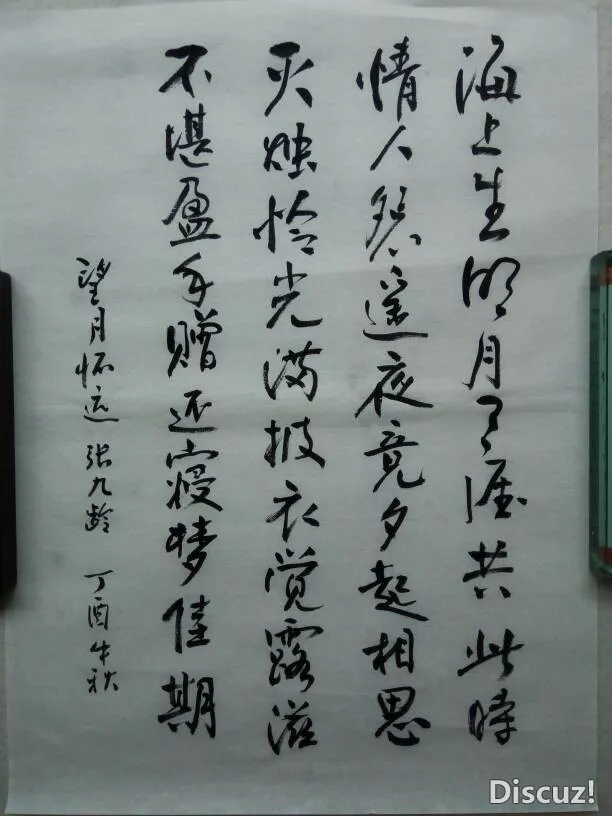 海上生明月天涯共此时
情人怨遥夜竟夕起相思
灭烛怜光满披衣觉露滋
不堪盈手赠还寝梦佳期
望月怀远 张九龄 丁酉年秋
Discuz!